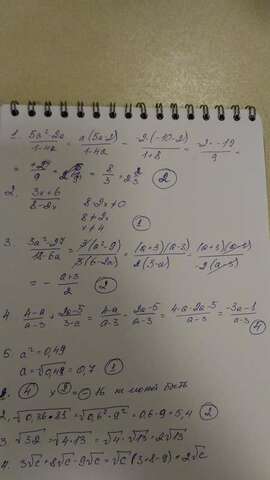 1. (5a²-2a)/(1-4a) = a(5a-2)/(1-4a) = -2·(-10-2)/(1+8) = -2·-12/9 =
= 24/9 = = 8/3 = 2 2/3 (2)
2. (3x+6)/(8-2x) 8-2x≠0
8≠2x
x≠4 (1)
3. (3a²-27)/(18-6a) = 3(a²-9)/3(6-2a) = (a+3)(a-3)/2(3-a) = (a+3)(a-3)/-2(a-3)
= -(a+3)/2 (2)
4 (4-a)/(a-3) + (2a-5)/(3-a) = (4-a)/(a-3) - (2a-5)/(a-3) = (4-a-2a-5)/(a-3) = (-3a-1)/(a-3) (4)
5. a² = 0,49
a = √0,49 = 0,7 (1)
(4) x = - 16 не может быть
2. √0,36·81 = √0,6²·9² = 0,6·9 = 5,4 (2)
3 √52 = √4·13 = √4·√13 = 2√13
4. 3√c + 8√c - 9√c = √c(3+8-9) = 2√c